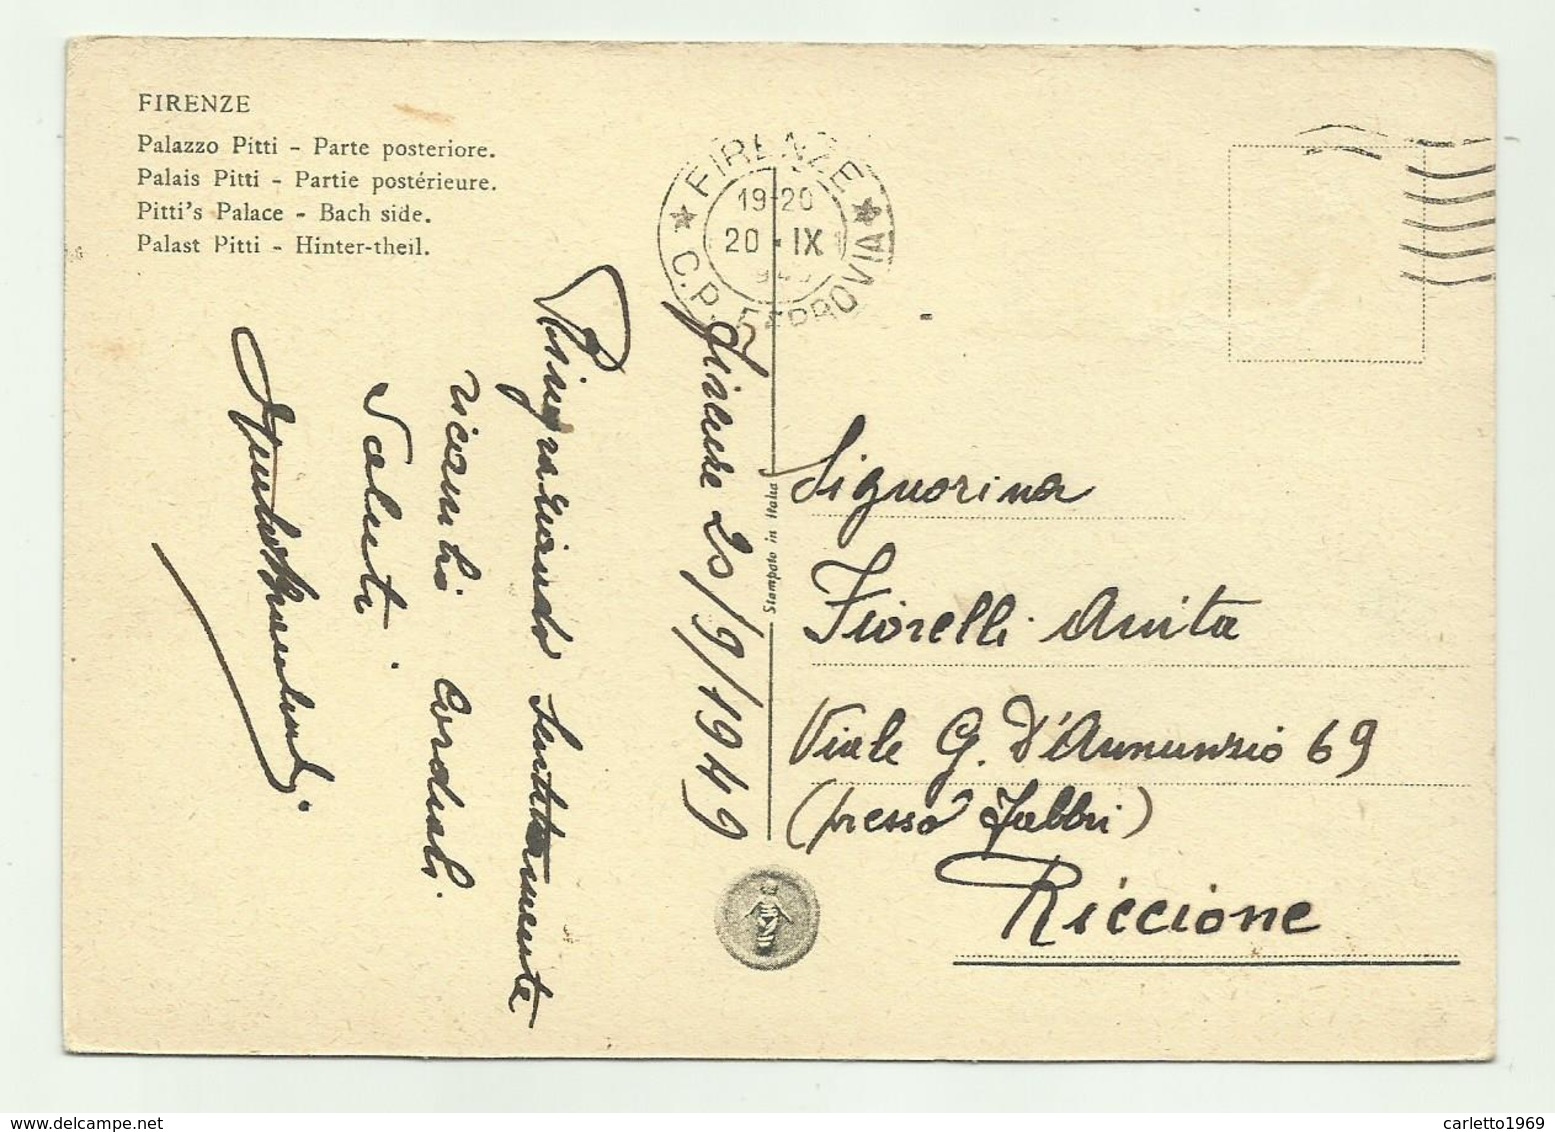 FIRENZE
Palazzo Pitti - Parte posteriore.
Palais Pitti - Partie postérieure.
Pitti's Palace - Bach side.
Palast Pitti - Hinter-theil.
FIRENZE
19-20
20 · IX
C.P. FERROVIA
Firenze 20/9/1949
Ringraziando Sentitamente
ricambio Cordiali
Saluti.
Stampato in Italia
Signorina
Fiorelli Anita
Viale G. D'Annunzio 69
(presso Fabbri)
Riccione
carletto1969